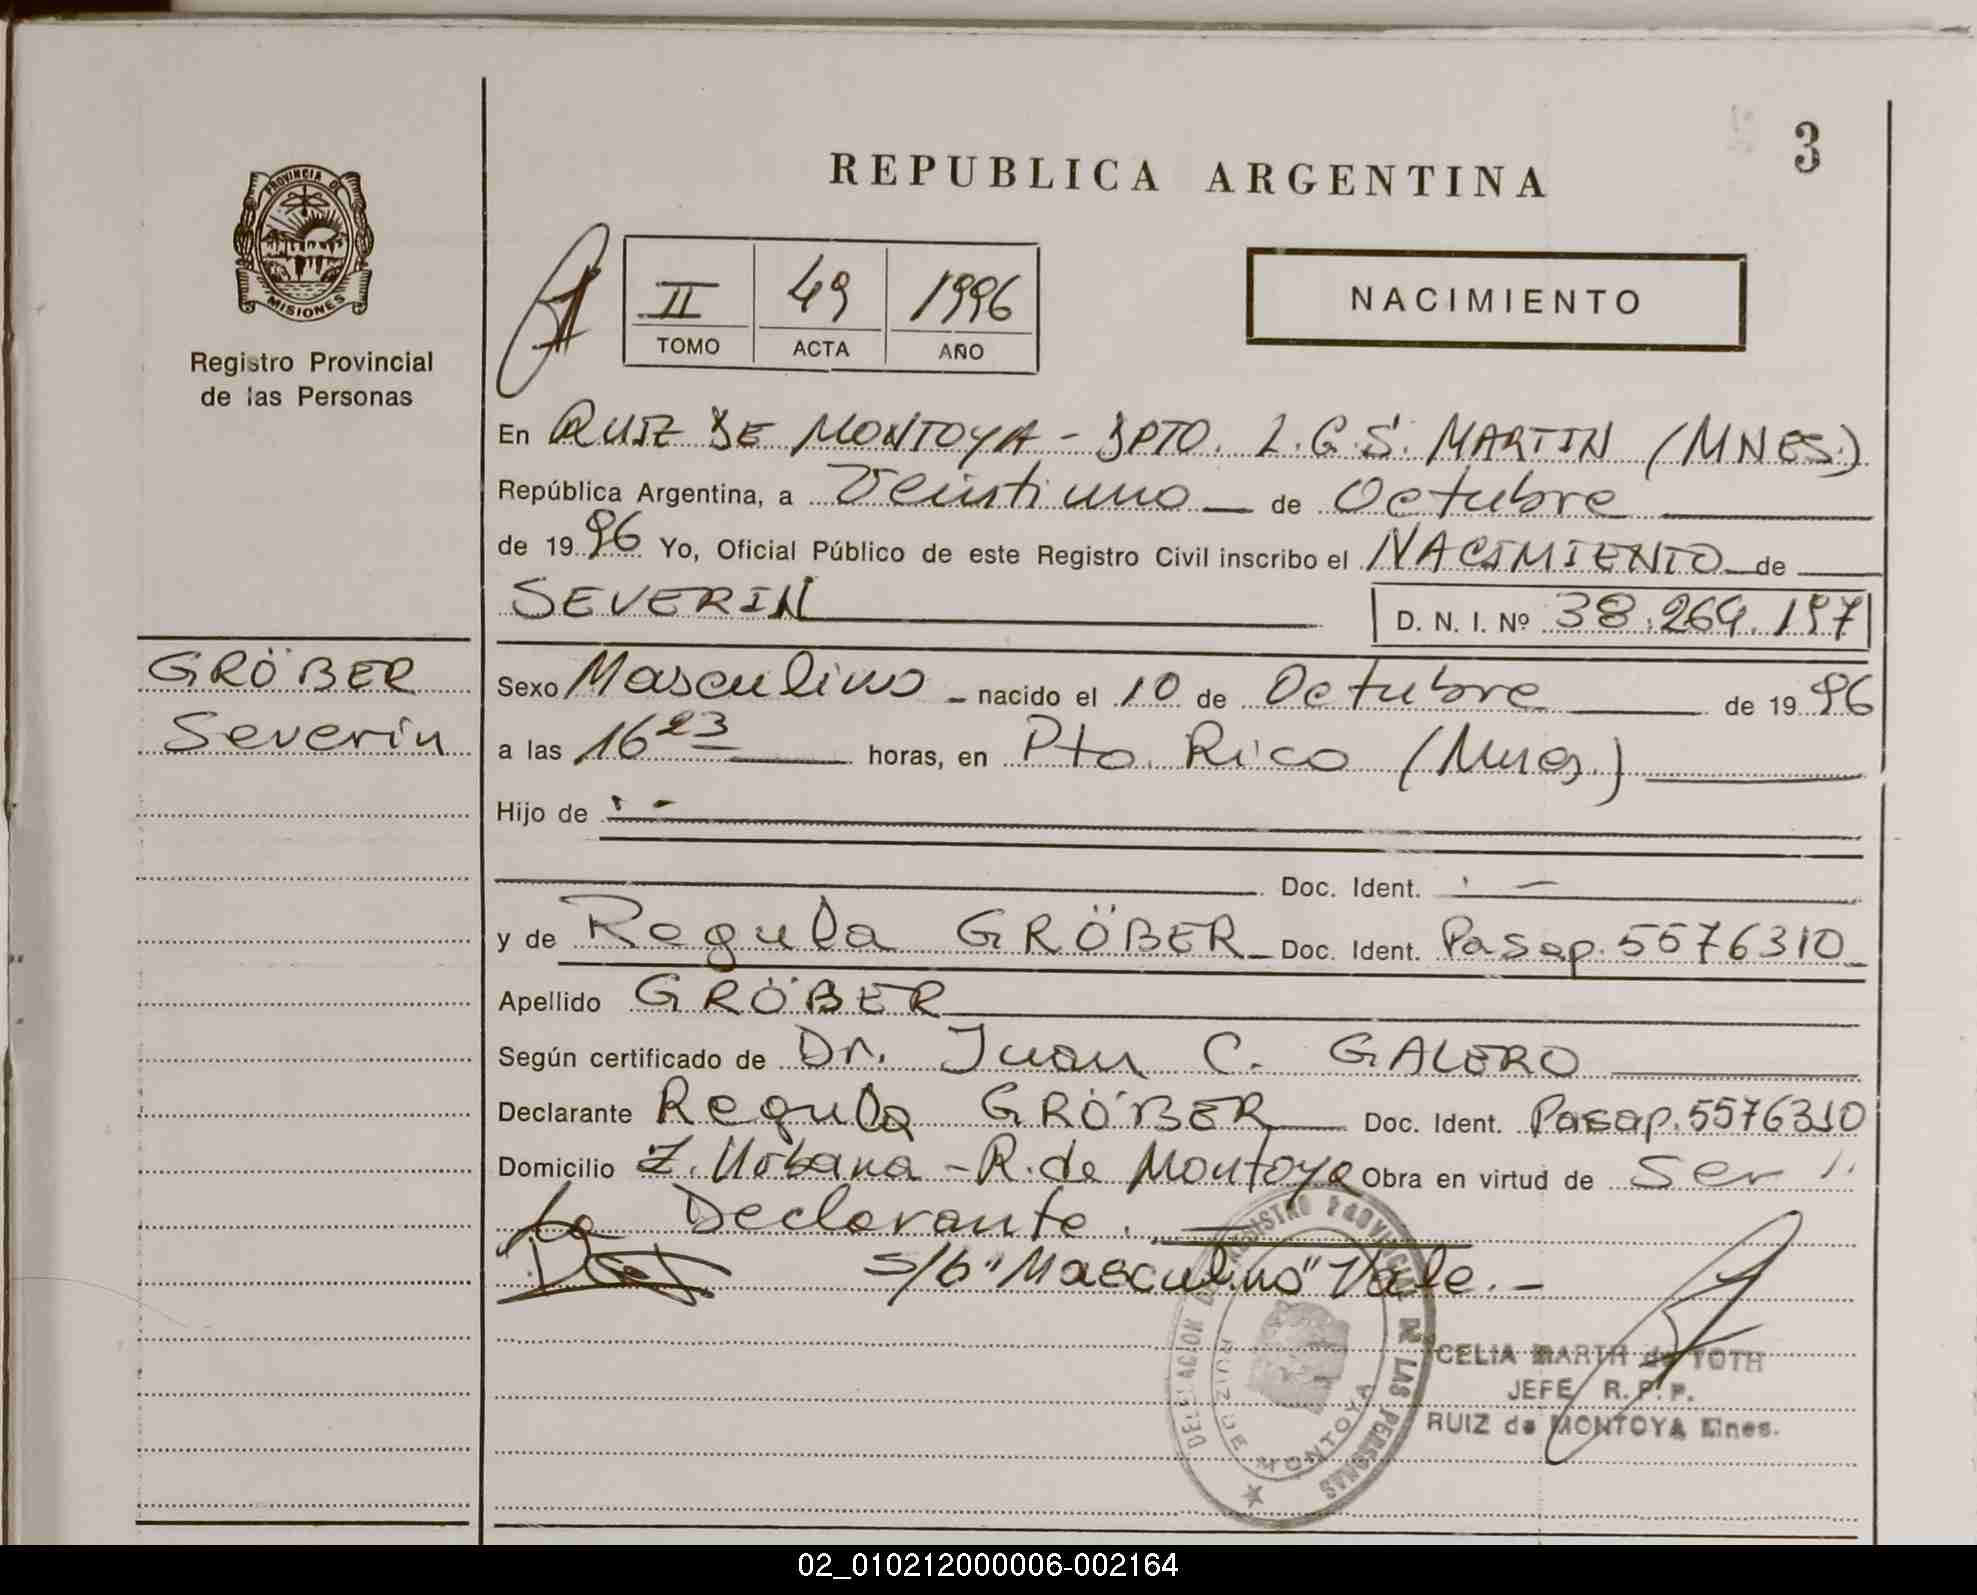 3
REPUBLICA ARGENTINA
PROVINCIA DE
MISIONES
Registro Provincial
de las Personas
II 49 1996
TOMO ACTA AÑO
NACIMIENTO
En RUIZ DE MONTOYA - DPTO. L.G.S. MARTIN (MNES.)
República Argentina, a Veintiuno de Octubre
de 1996 Yo, Oficial Público de este Registro Civil inscribo el NACIMIENTO de
SEVERIN
D. N. I. Nº 38.264.197
GRÖBER
Severin
Sexo Masculino - nacido el 10 de Octubre de 1996
a las 16 23 horas, en Pto. Rico (Mnes.)
Hijo de . -
Doc. Ident. . -
y de Regula GRÖBER - Doc. Ident. Pasap. 5576310
Apellido GRÖBER
Según certificado de Dr. Juan C. GALERO
Declarante Regula GRÖBER Doc. Ident. Pasap. 5576310
Domicilio Z. Urbana - R. de Montoya Obra en virtud de Ser
la Declarante.
s/b "Masculino" Vale. -
DELEGACION DEL REGISTRO PROVINCIAL DE LAS PERSONAS
RUIZ DE MONTOYA
CELIA MARTA de TOTH
JEFE R. P. P.
RUIZ de MONTOYA Mnes.
02_010212000006-002164